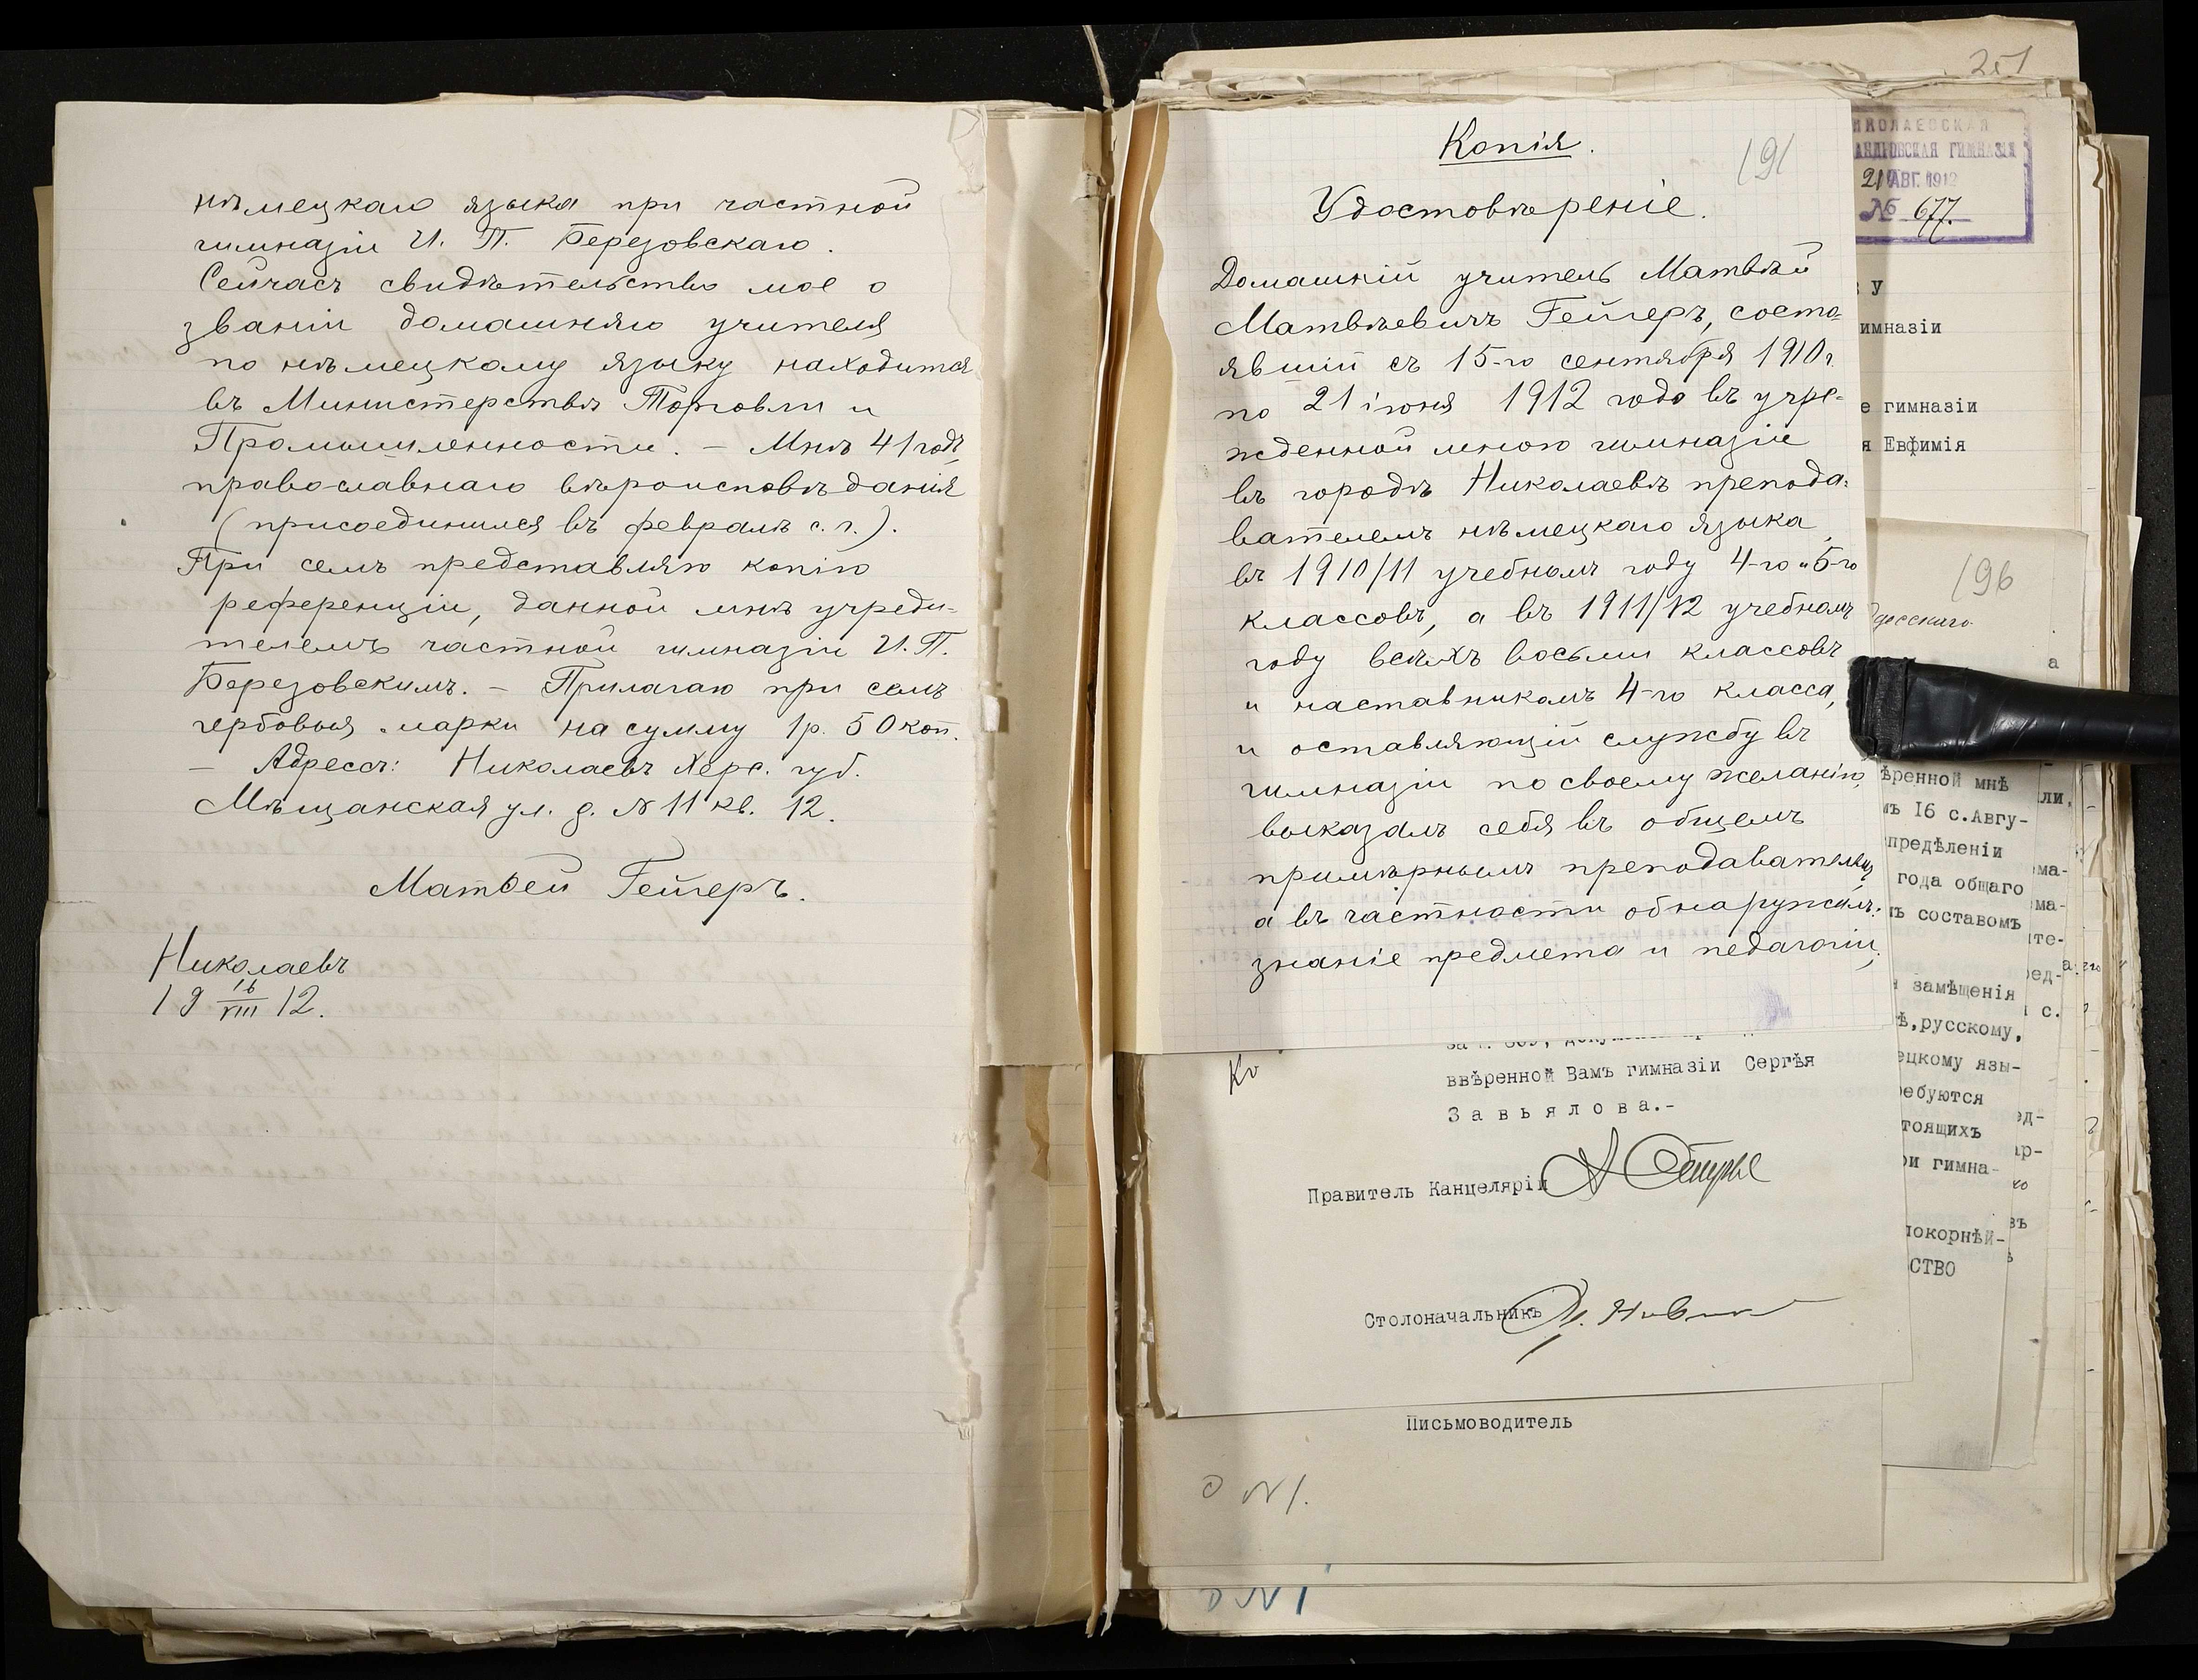 нѣмецкаго языка при частной
гимназіи И. П. Березовскаго.
Сейчасъ свидѣтельство мое о
званіи домашняго учителя
по нѣмецкому языку находится
въ Министерствѣ Торговли и
Промышленности. – Мнѣ 41 годъ,
православнаго вѣроисповѣданія
(присоединился въ февралѣ с. г.).
При семъ представляю копію
референціи, данной мнѣ учреди-
телемъ частной гимназіи И. П.
Березовскимъ. – Прилагаю при семъ
гербовыя марки на сумму 1 р. 50 коп.
– Адрессъ: Николаевъ Херс. губ.
Мѣщанская ул. д. № 11 кв. 12.
Матвей Гейгеръ.
Николаевъ
19 16/VIII 12.
251
Копія.
191
Удостовѣреніе.
Домашній учитель Матвѣй
Матвѣевичъ Гейгеръ, состо-
явшій съ 15-го сентября 1910 г.
по 21 іюня 1912 года въ учре-
жденной мною гимназіи
въ городѣ Николаевѣ препода-
вателемъ нѣмецкаго языка
въ 1910/11 учебномъ году 4-го и 5-го
классовъ, а въ 1911/12 учебномъ
году всѣхъ восьми классовъ
и наставникомъ 4-го класса,
и оставляющій службу въ
гимназіи по своему желанію,
выказалъ себя въ общемъ
примѣрнымъ преподавателемъ,
а въ частности обнаружилъ:
знаніе предмета и педагогіи,
ИКОЛАЕВСКАЯ
АНДРОВСКАЯ ГИМНАЗІЯ
21 АВГ. 1912
№ 677.
У
имназіи
е гимназіи
я Евфимія
196
а
ѣренной мнѣ
ли,
мъ 16 с.Авгу-
предѣленіи
ма-
года общаго
ма-
ъ составомъ
ите-
ред-
замѣщенія
с.
ѣ,русскому,
ецкому язы-
ребуются
ед-
тоящихъ
ар-
ри гимна-
въ
покорнѣй-
СТВО
ввѣренной Вамъ гимназіи Сергѣя
Завьялова.-
Правитель Канцеляріи
Столоначальникъ
Письмоводитель